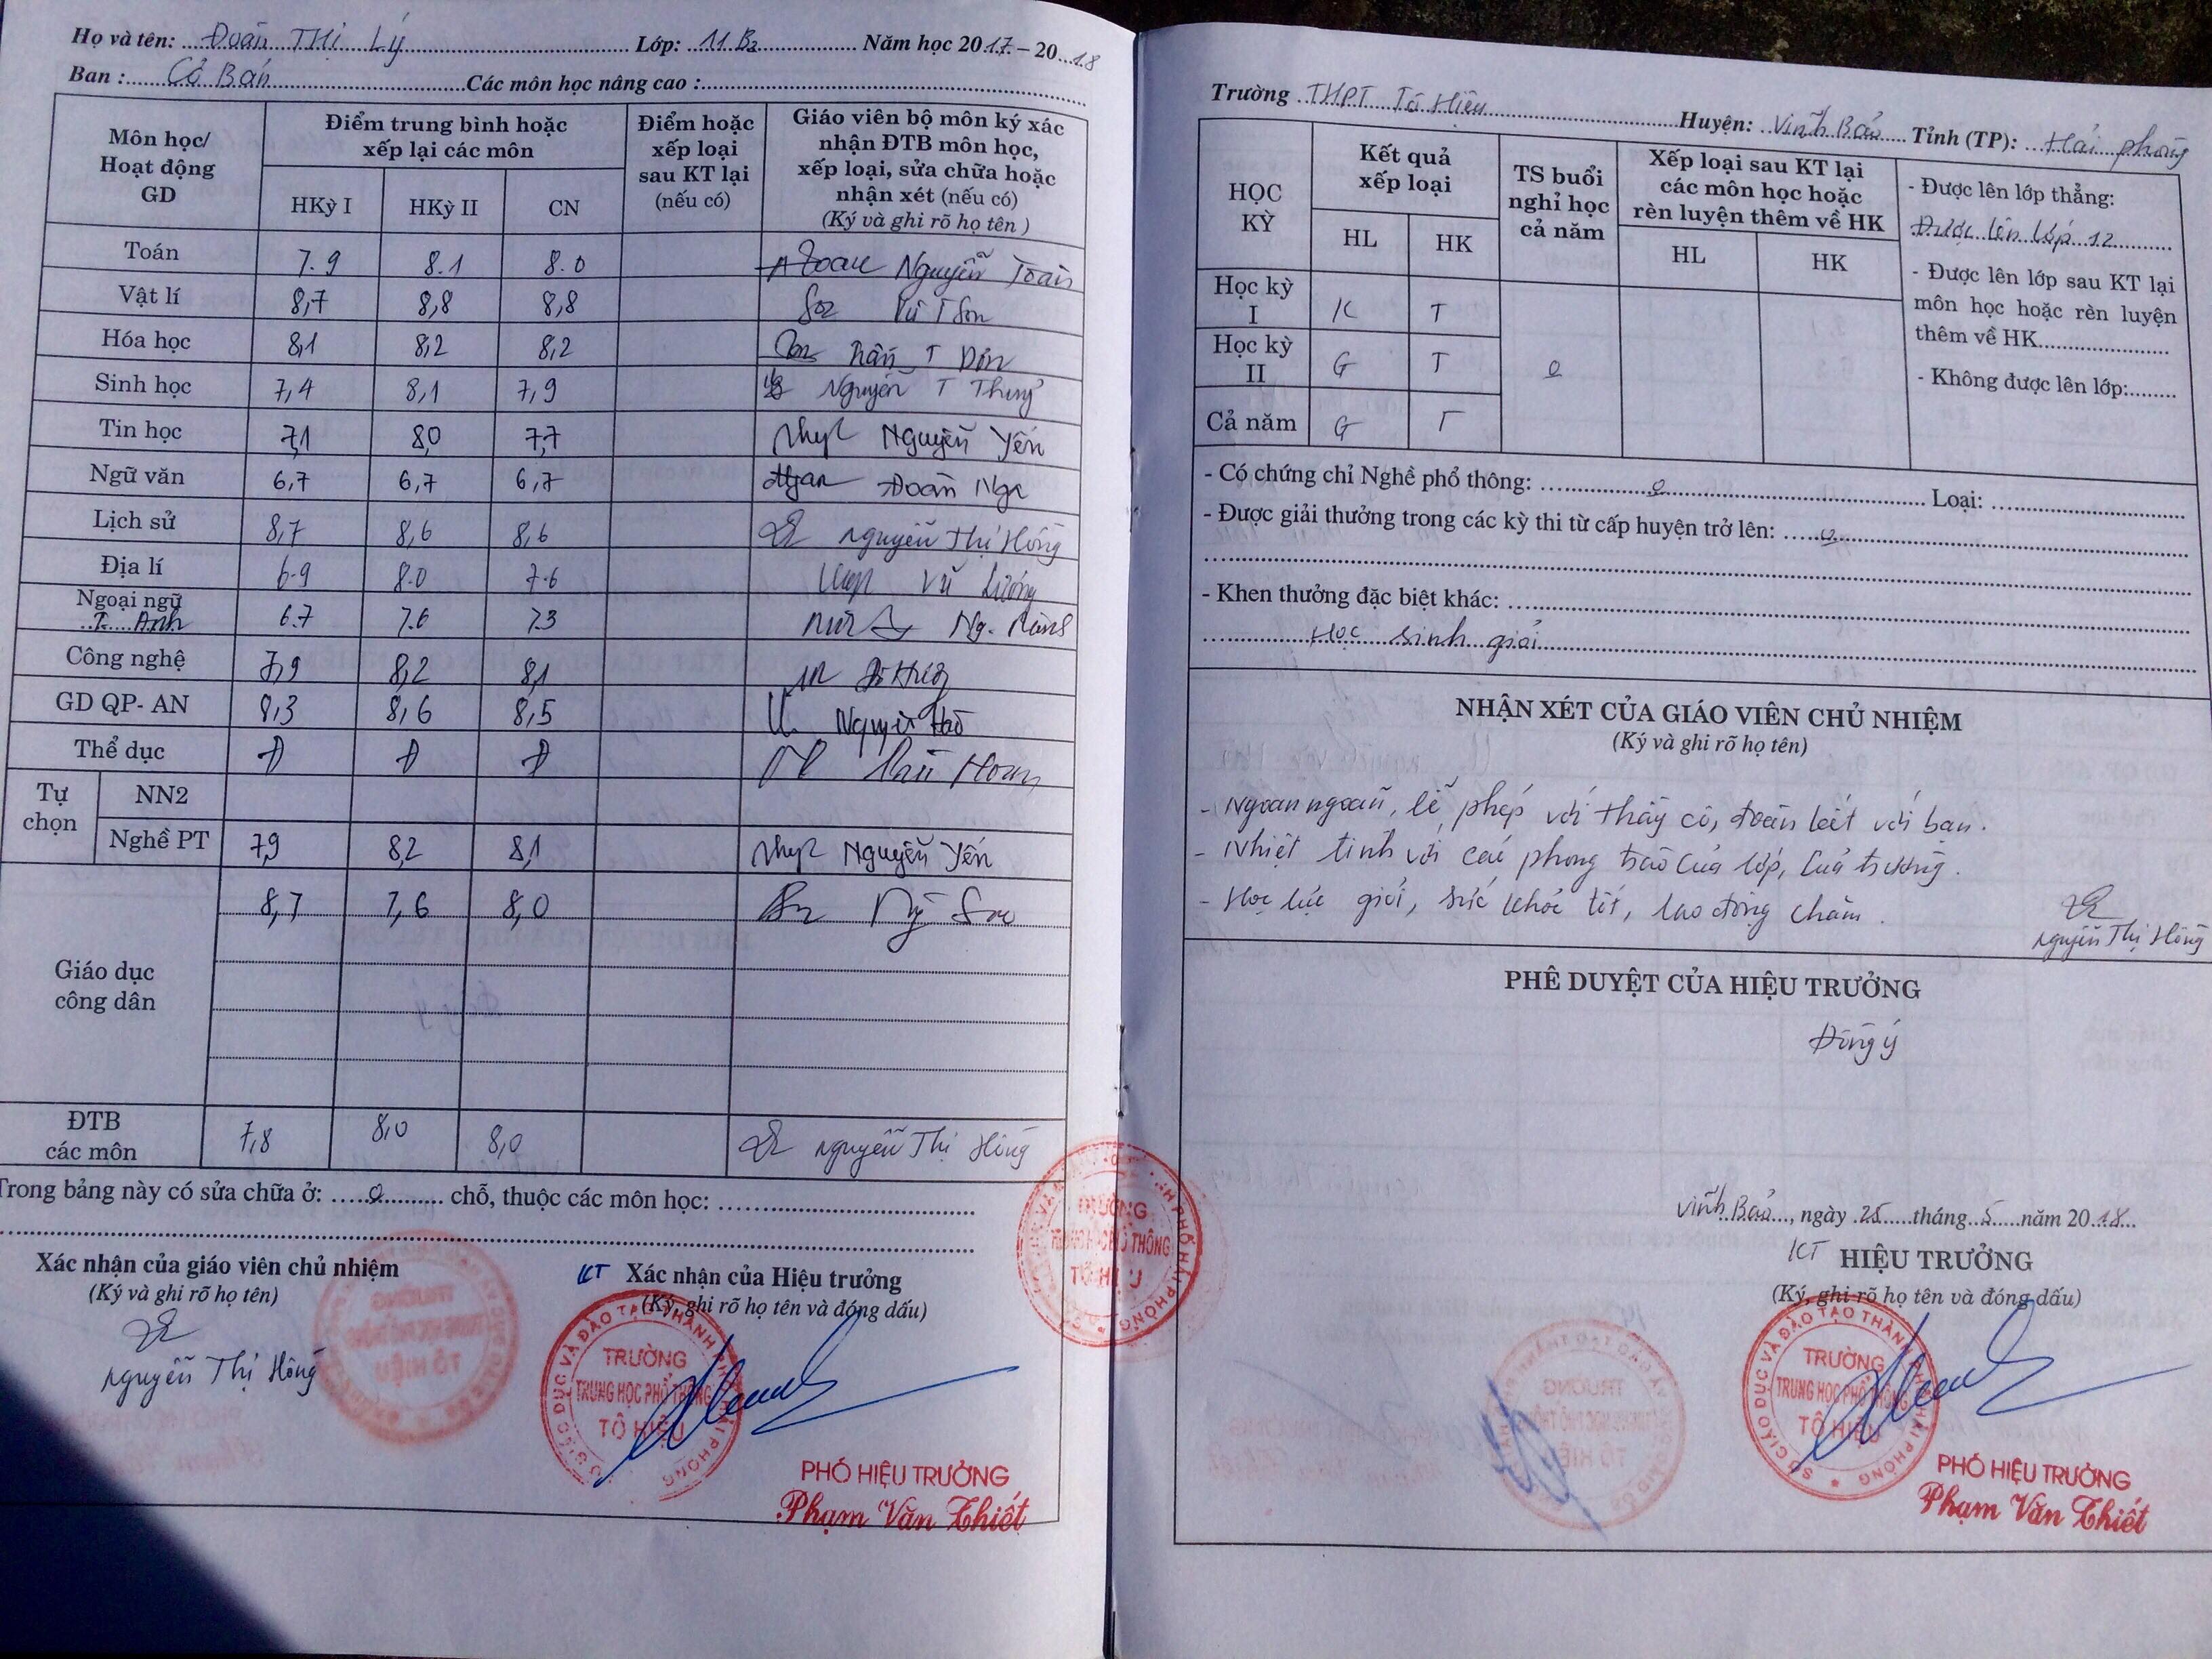 Họ và tên: Đoàn Thị Lý Lớp: 11 B2 Năm học 2017 – 2018
Ban : Cơ Bản Các môn học nâng cao :
Môn học/ Hoạt động GD
Điểm trung bình hoặc xếp lại các môn
Điểm hoặc xếp loại sau KT lại (nếu có)
Giáo viên bộ môn ký xác nhận ĐTB môn học, xếp loại, sửa chữa hoặc nhận xét (nếu có) (Ký và ghi rõ họ tên )
HKỳ I HKỳ II CN
Toán 7.9 8.1 8.0 Nguyễn Toàn
Vật lí 8,7 8,8 8,8 Vũ T Sơn
Hóa học 8,1 8,2 8,2 Trần T
Sinh học 7,4 8,1 7,9 Nguyễn T Thuỷ
Tin học 7,1 8,0 7,7 Nguyễn Yến
Ngữ văn 6,7 6,7 6,7 Đoàn Nga
Lịch sử 8,7 8,6 8,6 Nguyễn Thị Hồng
Địa lí 6.9 8.0 7.6 Vũ Lương
Ngoại ngữ
T. Anh 6.7 7.6 7.3 Ng.
Công nghệ 7,9 8,2 8,1
GD QP- AN 8,3 8,6 8,5 Nguyễn
Thể dục Đ Đ Đ
Tự chọn
NN2
Nghề PT 7,9 8,2 8,1 Nguyễn Yến
Giáo dục công dân 8,7 7,6 8,0
ĐTB các môn 7,8 8,0 8,0 Nguyễn Thị Hồng
Trong bảng này có sửa chữa ở: 0 chỗ, thuộc các môn học:
Xác nhận của giáo viên chủ nhiệm
(Ký và ghi rõ họ tên)
Nguyễn Thị Hồng
KT Xác nhận của Hiệu trưởng
(Ký, ghi rõ họ tên và đóng dấu)
SỞ GIÁO DỤC VÀ ĐÀO TẠO THÀNH PHỐ HẢI PHÒNG
TRƯỜNG
TRUNG HỌC PHỔ THÔNG
TÔ HIỆU
PHÓ HIỆU TRƯỞNG
Phạm Văn Thiết
Trường THPT Tô Hiệu Huyện: Vĩnh Bảo Tỉnh (TP): Hải Phòng
HỌC KỲ
Kết quả xếp loại
TS buổi nghỉ học cả năm
Xếp loại sau KT lại các môn học hoặc rèn luyện thêm về HK
HL HK HL HK
Học kỳ I K T
Học kỳ II G T 0
Cả năm G T
- Được lên lớp thẳng:
Được lên lớp 12
- Được lên lớp sau KT lại
môn học hoặc rèn luyện
thêm về HK
- Không được lên lớp:
- Có chứng chỉ Nghề phổ thông: 0 Loại:
- Được giải thưởng trong các kỳ thi từ cấp huyện trở lên: 0
- Khen thưởng đặc biệt khác:
Học sinh giỏi
NHẬN XÉT CỦA GIÁO VIÊN CHỦ NHIỆM
(Ký và ghi rõ họ tên)
- Ngoan ngoãn, lễ phép với thầy cô, đoàn kết với bạn.
- Nhiệt tình với các phong trào của lớp, của trường.
- Học lực giỏi, sức khỏe tốt, lao động chăm.
Nguyễn Thị Hồng
PHÊ DUYỆT CỦA HIỆU TRƯỞNG
Đồng ý
Vĩnh Bảo, ngày 25 tháng 5 năm 2018
KT HIỆU TRƯỞNG
(Ký, ghi rõ họ tên và đóng dấu)
SỞ GIÁO DỤC VÀ ĐÀO TẠO THÀNH PHỐ HẢI PHÒNG
TRƯỜNG
TRUNG HỌC PHỔ THÔNG
TÔ HIỆU
PHÓ HIỆU TRƯỞNG
Phạm Văn Thiết